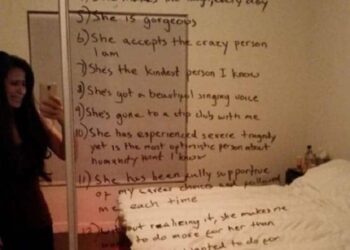 She makes me laugh every day
5) She is gorgeous
6) She accepts the crazy person
I am
7) She's the kindest person I know
8) She's got a beautiful singing voice
9) She's gone to a strip club with me
10) She has experienced severe tragedy
yet is the most optimistic person about
humanity that I know
11) She has been fully supportive
of my career choices and followed
me each time
12) Without realizing it, she makes me
to do more for her than
wanted to do for